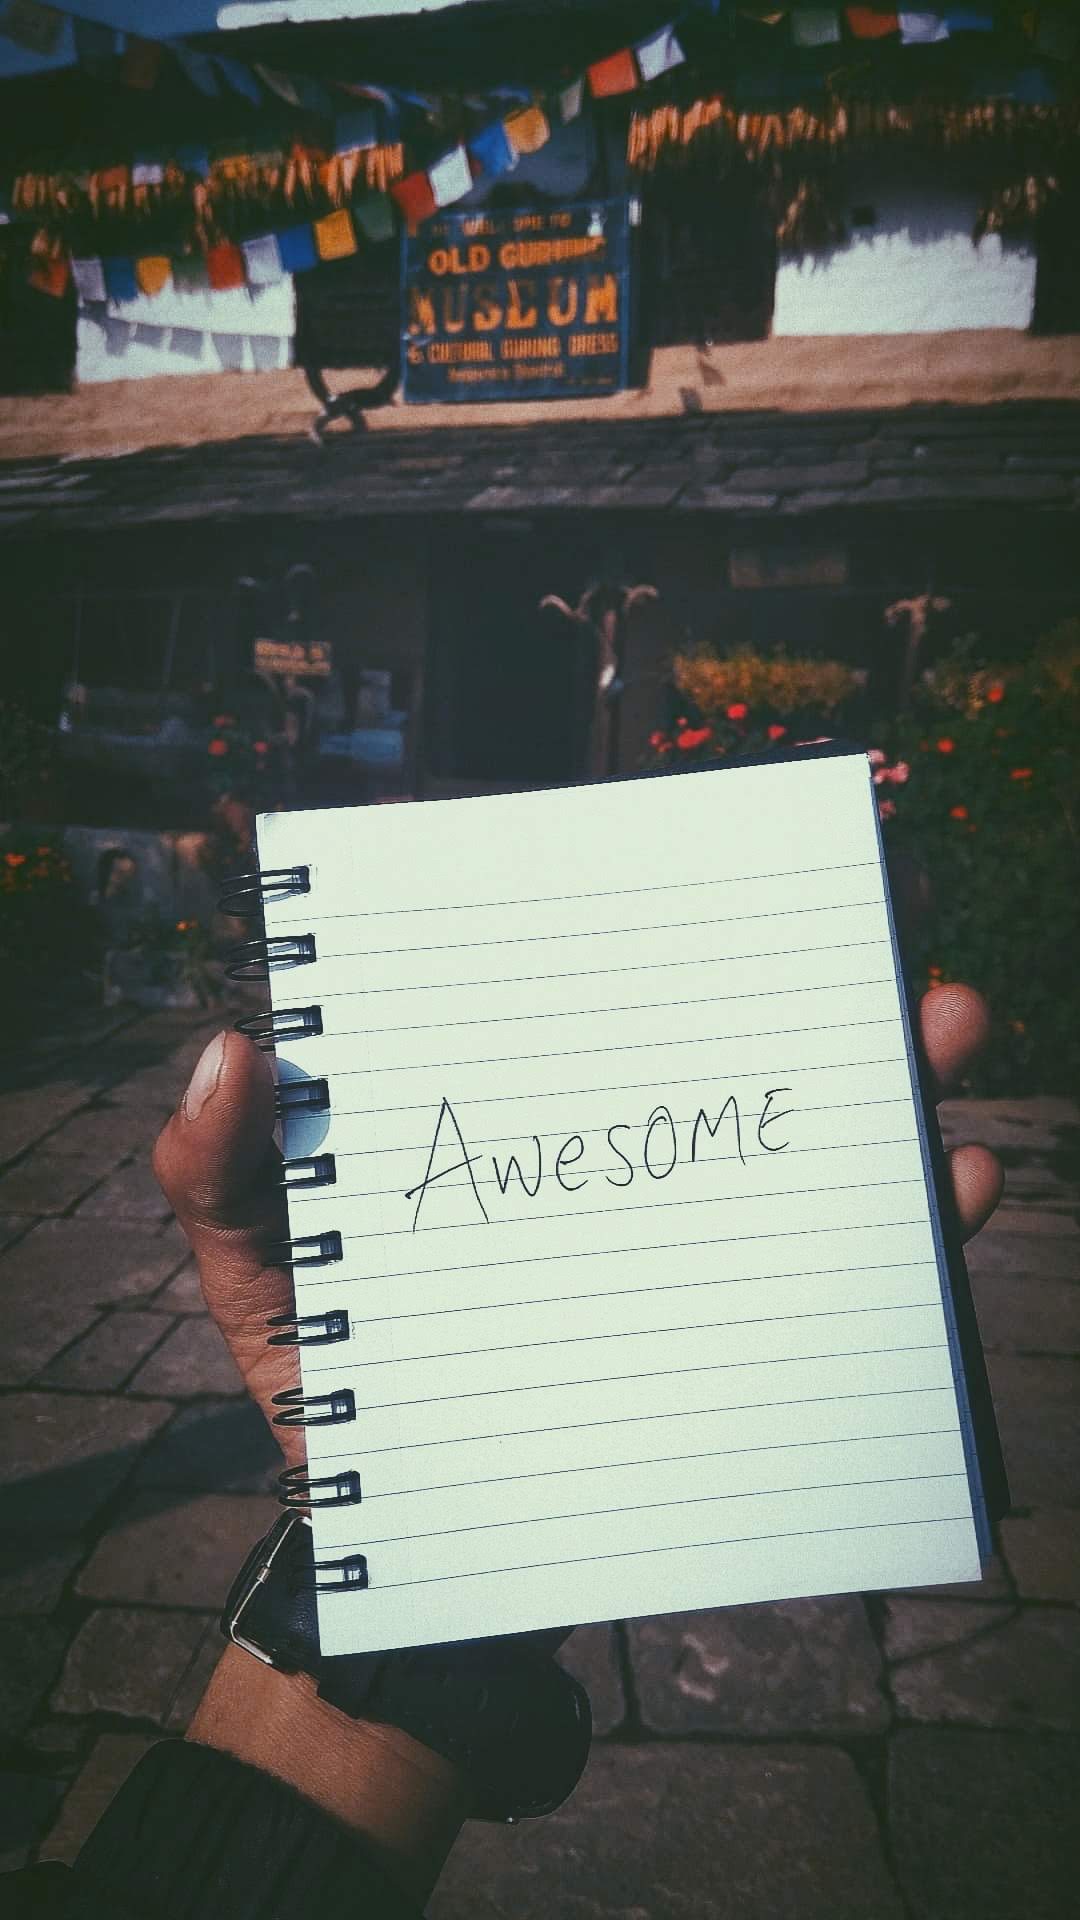 WELCOME TO
OLD GURUNG
MUSEUM
& CULTURAL GURUNG DRESS
AWeSOME